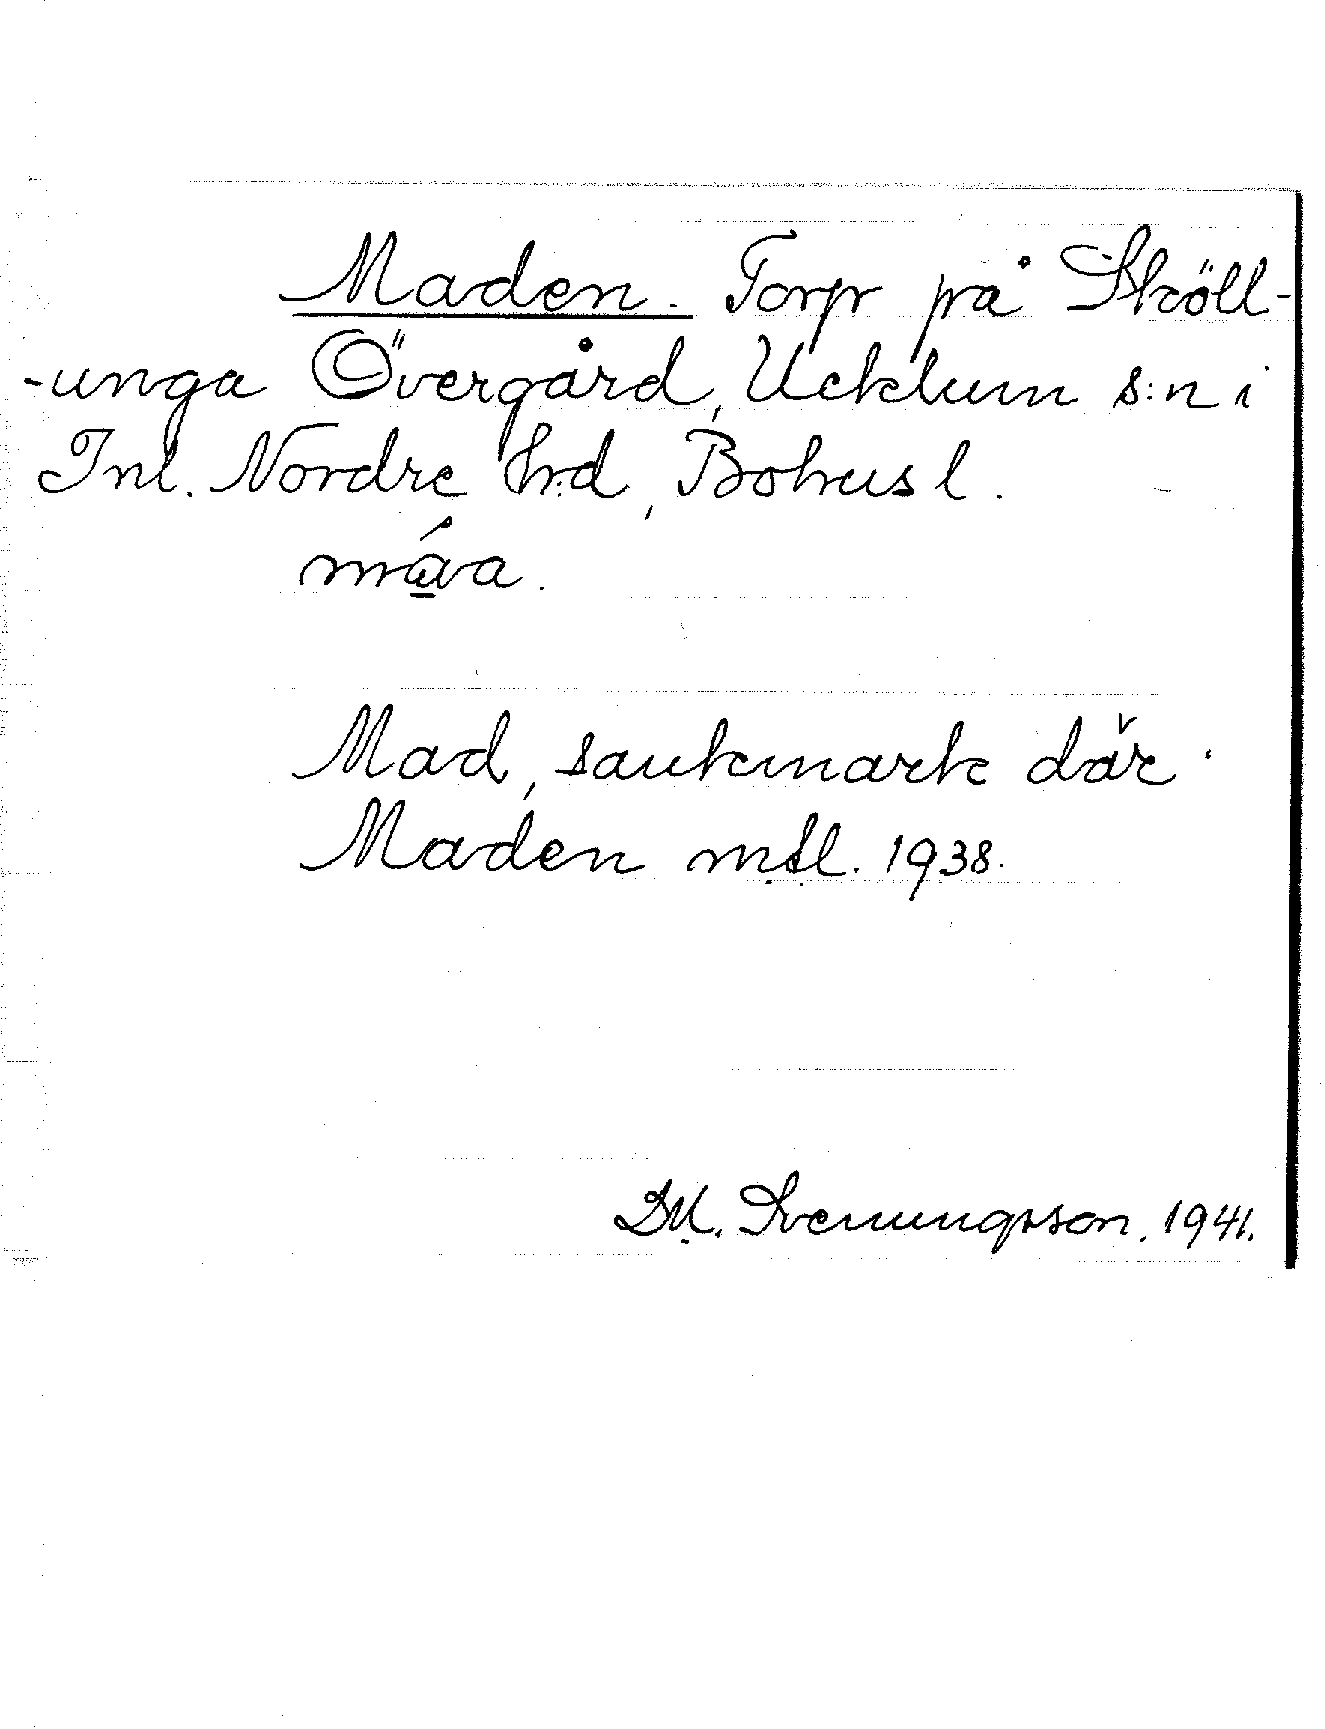 Maden. Torp på Sköll-
-unga Övergård, Ucklum s:n i
Inl. Nordre h:d, Bohusl.
Mad, sankmark där.
Maden msl. 1938.
D.M. Svenungsson. 1941.